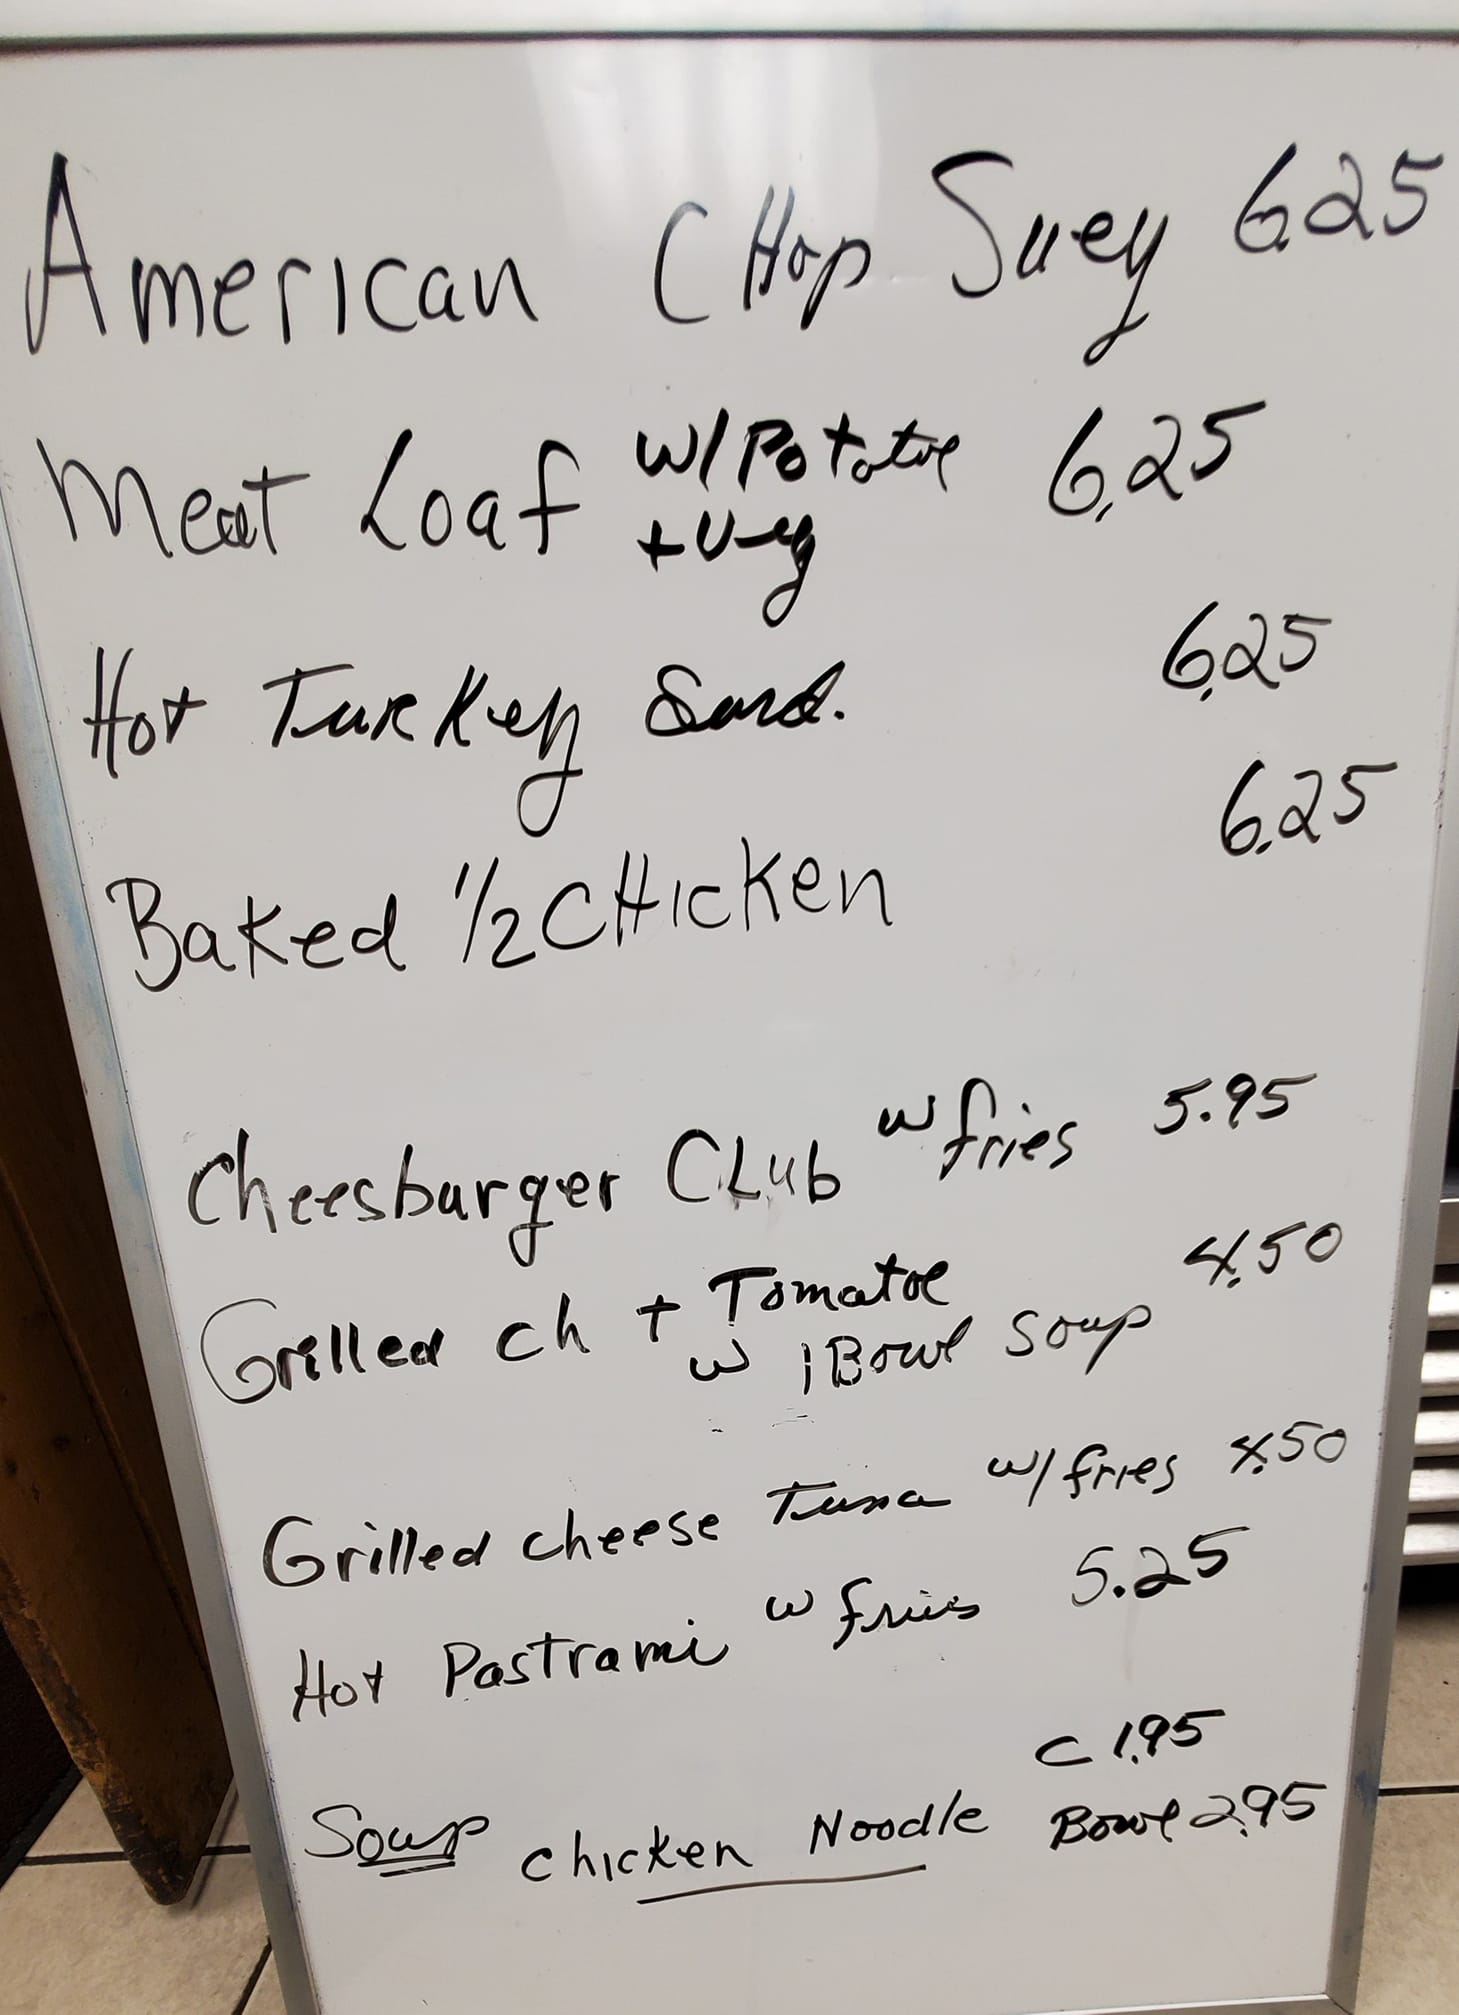 American CHop Suey 6.25
Meat Loaf w/Potatoe 6.25
+ Veg
Hot Turkey Sand. 6.25
Baked 1/2 CHicken 6.25
Cheesburger CLub w fries 5.95
Grilled ch + Tomatoe 4.50
w 1 Bowl soup
Grilled cheese Tuna w/ fries 4.50
Hot Pastrami w fries 5.25
C 1.95
Soup chicken Noodle Bowl 2.95